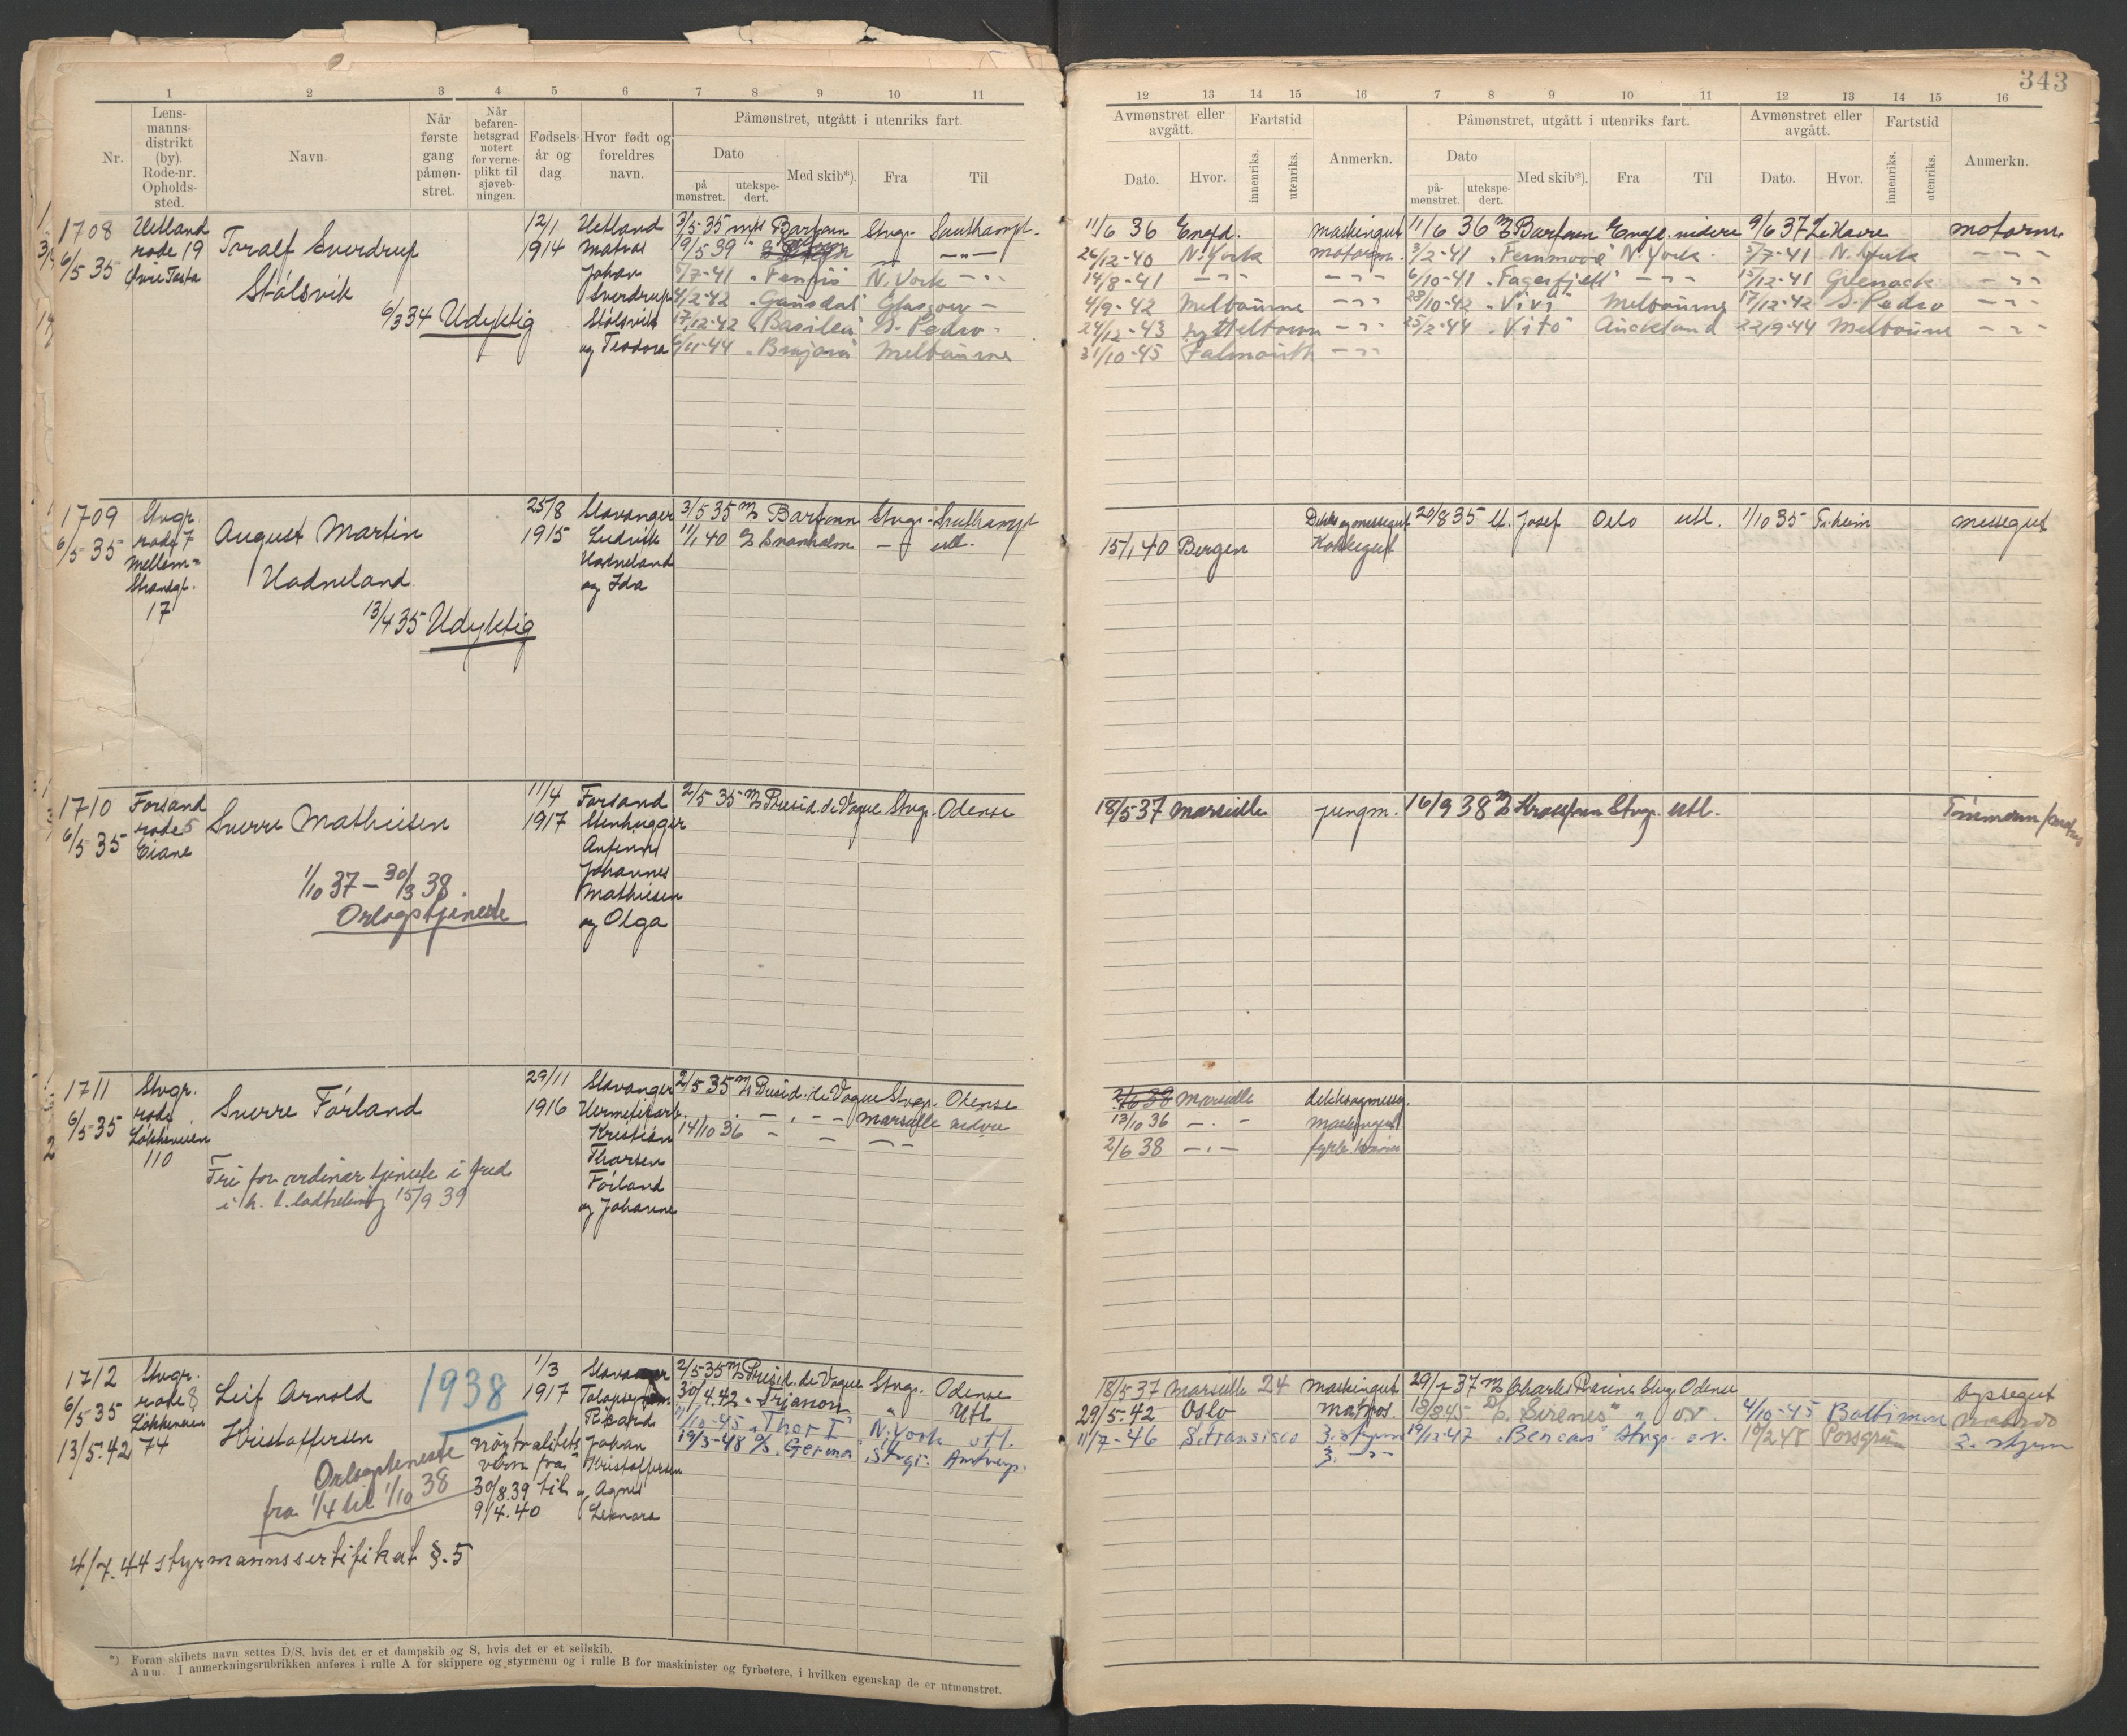 343
1 2 3 4 5 6 7 8 9 10 11
Nr.
Lens-
manns-
distrikt
(by).
Rode-nr.
Opholds-
sted.
Navn.
Når
første
gang
påmøn-
stret.
Når
befaren-
hetsgrad
notert
for verne-
plikt til
sjøveb-
ningen.
Fødsels-
år og
dag
Hvor født og
foreldres
navn.
Påmønstret, utgått i utenriks fart.
Dato
på
mønstret.
utekspe-
dert.
Med skib*).
Fra
Til
12 13 14 15 16 7 8 9 10 11 12 13 14 15 16
Avmønstret eller
avgått.
Dato.
Hvor.
Fartstid
innenriks.
utenriks.
Anmerkn.
Påmønstret, utgått i utenriks fart.
Dato
på-
mønstret.
utekspe-
dert.
Med skib*).
Fra
Til
Avmønstret eller
avgått.
Dato.
Hvor.
Fartstid
innenriks.
utenriks.
Anmerkn.
1708
6/5 35
Hetland
rode 19
Øvre Tasta
Toralf Sverdrup
Stålsvik
6/3 34 Udyktig
12/1
1914
Hetland
Matros
Johan
Sverdrup
Stålsvik
og Teodora
3/5 35 m/t Barfonn Stvgr. Southampt.
19/5 39
5/7-41 N. York
4/2-42 "Gausdal" Glasgow
17/12-42 "Basilea" S. Pedro
6/11-44 Melbourne
11/6 36 Engld. maskingut
26/12-40 N. York motorm.
14/8-41
4/9-42 Melbourne
24/12-43
31/10-45 Falmouth
11/6 36 Barfonn Engl. videre
3/2-41 "Fernmoor" N. York
6/10-41 "Fagerfjell"
28/10-42 "Vivi" Melbourne
25/2-44 "Vito" Auckland
9/6 37 Le Havre motorm
5/7-41 N. York
15/12-41 Greenock
17/12-42 S. Pedro
22/9-44 Melbourne
1709
6/5 35
Stvgr.
rode 7
Mellem-
Strandgt.
17
August Martin
Hadneland
13/4 35 Udyktig
25/8
1915
Stavanger
Ludvik
Hadneland
og Ida
3/5 35 Barfonn Stvgr. Southampt
11/1 40 Svanholm utl.
Dekks og messegut
15/1 40 Bergen Kokkegut
20/8 35 Josef Oslo utl. 1/10 35 Tr.heim messegut
1710
6/5 35
Forsand
rode 5
Eiane
Sverre Mathiesen
1/10 37 – 30/3 38.
Orlogstjeneste
11/4
1917
Forsand
Stenhugger
Johannes
Mathiesen
og Olga
2/5 35 Presid. de Vogue Stvgr. Odense
18/5 37 Marseille jungm.
16/9 38 Stvgr. utl.
1711
6/5 35
Stvgr.
rode
Løkkeveien
110
Sverre Førland
Fri for ordinær tjeneste i fred
15/9 39
29/11
1916
Stavanger
Hermetikarb.
Kristian
Thorsen
Førland
og Johanne
2/5 35 Presid. de Vogue Stvgr. Odense
Marseille videre
14/10 36
2/6 38 Marseille
13/10 36 maskingut
2/6 38
1712
6/5 35
13/5.42
Stvgr.
rode 8
Løkkeveien
74
Leif Arnold
Kristoffersen
1938
Orlogstjeneste
fra 1/4 til 1/10 38
nøytralitets
vern fra
30/8.39 til
9/4.40
4/7.44 styrmannssertifikat §.5
1/3
1917
Stavanger
Rikard
Johan
Kristoffersen
og Agnes
Lenora
2/5 35 Presid. de Vogue Stvgr. Odense
30/4.42 "Trianon " Utl
11/10-45 "Thor I" N. York utl.
19/3-48 Stvgr. Antverp.
18/5 37 Marseille 24 maskingut
29/5-42 Oslo Matros
11/7-46 3. styrm
29/7 37 Charles Racine Stvgr. Odense
18/8 45 "Sirenes" " ov.
19/12-47 "Bencas" Stvgr. ov.
byssegut
4/10-45 Baltimore matros
10/2 48 Porsgrunn 2. styrm
*) Foran skibets navn settes D/S, hvis det er et dampskib og S, hvis det er et seilskib.
Anm. I anmerkningsrubrikken anføres i rulle A for skippere og styrmenn og i rulle B for maskinister og fyrbøtere, i hvilken egenskap de er utmønstret.